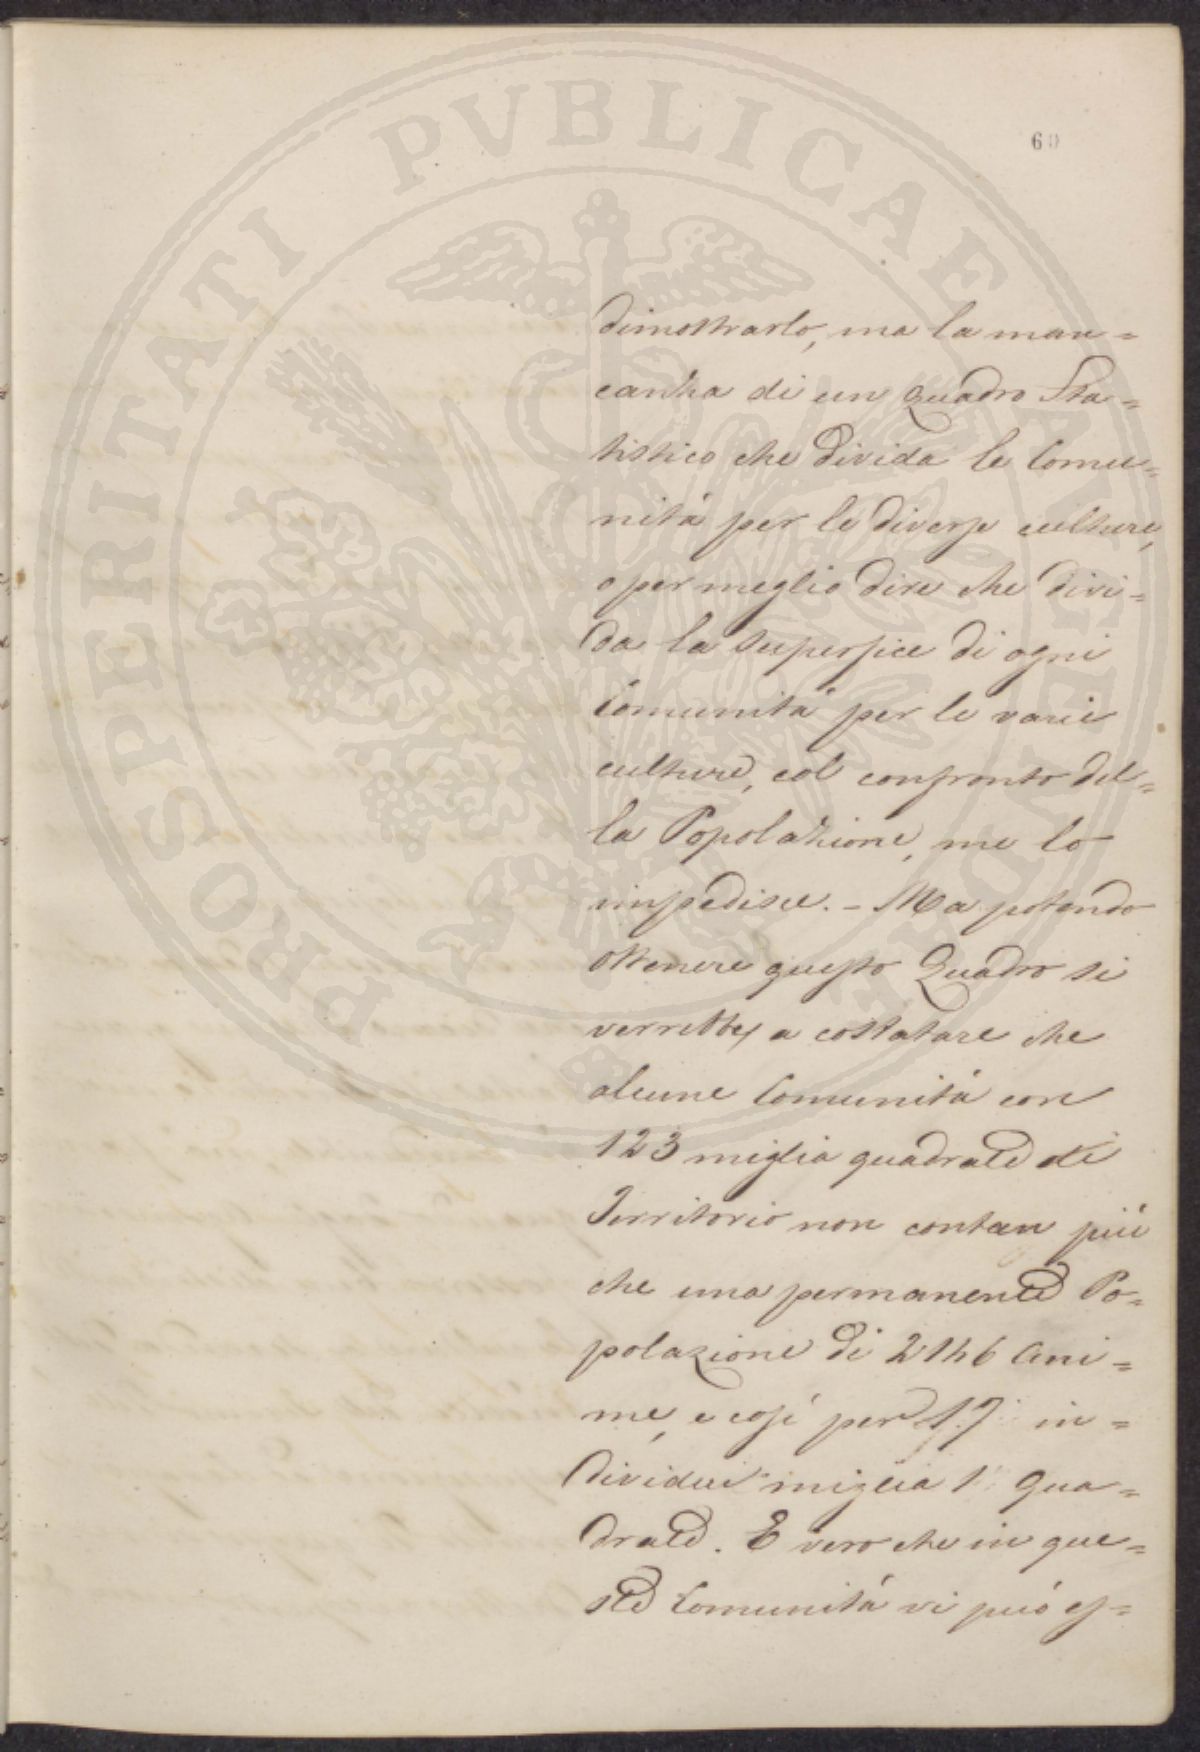 PROSPERITATI PVBLICAE AVGENDAE
60
dimostrarlo, ma la man=
canza di un quadro Sta=
tistico che divida le Comu=
nitá per le diverse culture,
o per meglio dire che divi=
da la superfice di ogni
Comunitá per le varie
culture, col confronto del=
la Popolazione, me lo
impedisce. - Ma potendo
ottenere questo Quadro si
verrebbe a costatare che
alcune Comunitá con
123 miglia quadrate di
Territorio non contan piú
che una permanente Po=
polazione di 2146 Ani=
me, e cosí per 17 in=
dividui miglia 1 qua=
drate. E vero che in que=
ste Comunitá vi puó es=